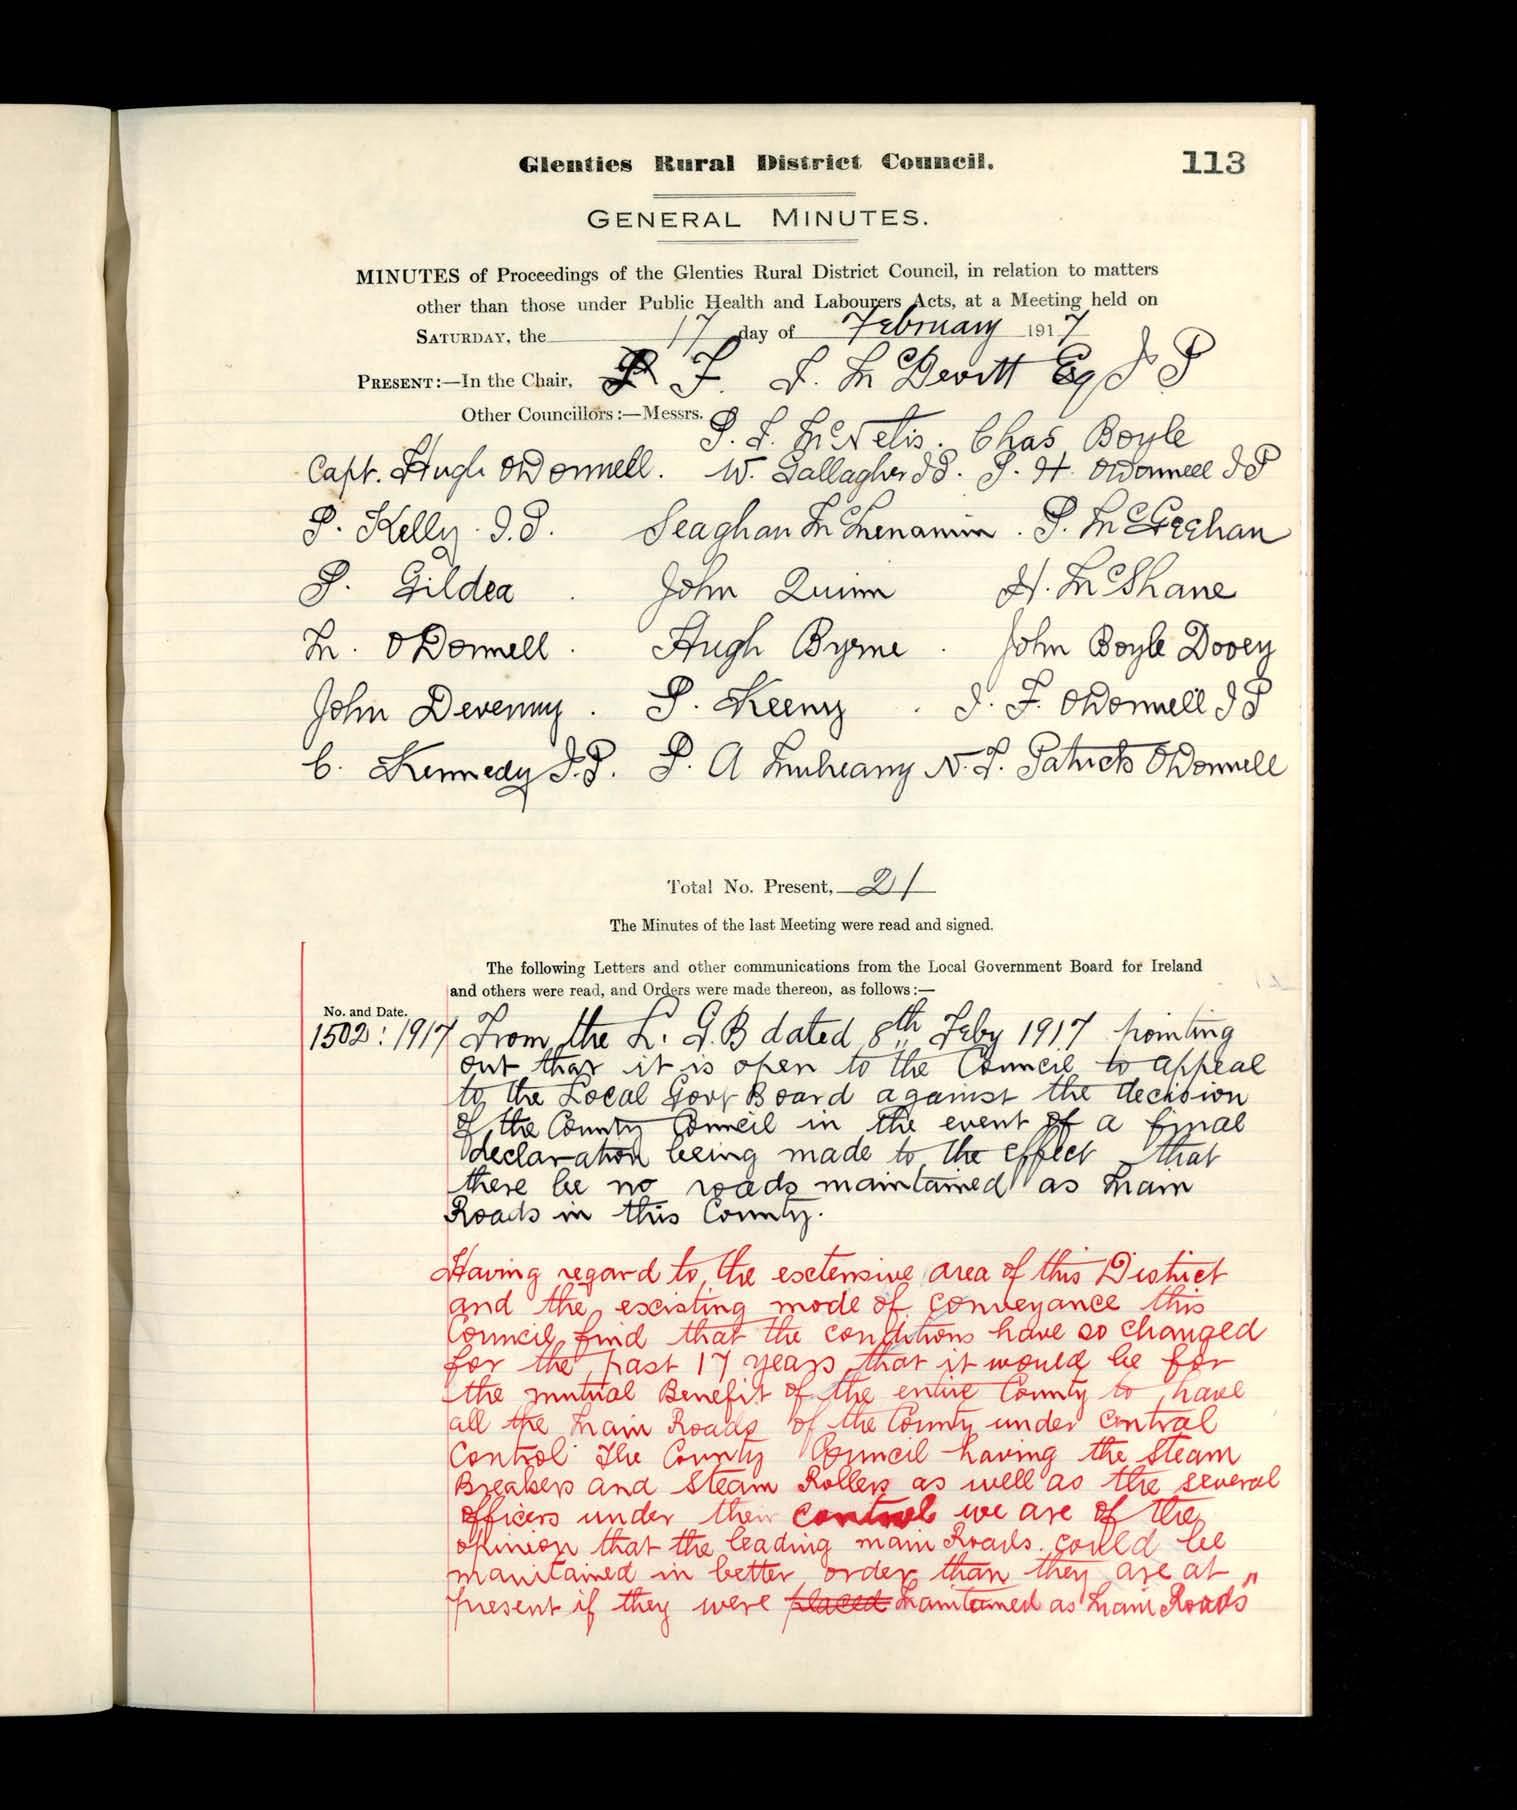 Glenties Rural District Council.
113
GENERAL MINUTES.
MINUTES of Proceedings of the Glenties Rural District Council, in relation to matters
other than those under Public Health and Labourers Acts, at a Meeting held on
SATURDAY, the 17 day of February 1917
PRESENT:—In the Chair, J. McDevitt Esq J P
Other Councillors:—Messrs. P. J. McNelis. Chas Boyle
Capt. Hugh O'Donnell. W. Gallagher J P. P. H. O'Donnell J P
P. Kelly. J. P. Seaghan McMenamin. P. McGeehan
P. Gildea. John Quinn H. McShane
M. O'Donnell. Hugh Byrne. John Boyle Dooey
John Devenny. P. Keeny. J. F. O'Donnell J P
C. Kennedy J. P. P. A Mulheany N. T. Patrick O'Donnell
Total No. Present, 21
The Minutes of the last Meeting were read and signed.
The following Letters and other communications from the Local Government Board for Ireland
and others were read, and Orders were made thereon, as follows:—
No. and Date.
1502: 1917 From the L. G. B dated 8th Feby 1917 pointing
out that it is open to the Council to appeal
to the Local Govt Board against the decision
of the County Council in the event of a final
declaration being made to the effect that
there be no roads maintained as Main
Roads in this County.
Having regard to the esctensive area of this District
and the escisting mode of conveyance this
Council find that the conditions have so changed
for the past 17 years that it would be for
the mutual Benefit of the entire County to have
all the Main Roads of the County under Central
Control The County Council having the Steam
Breakers and Steam Rollers as well as the several
officers under their control we are of the
opinion that the leading main Roads. could be
manitained in better order than they are at
present if they were placed Maintained as Main Roads"